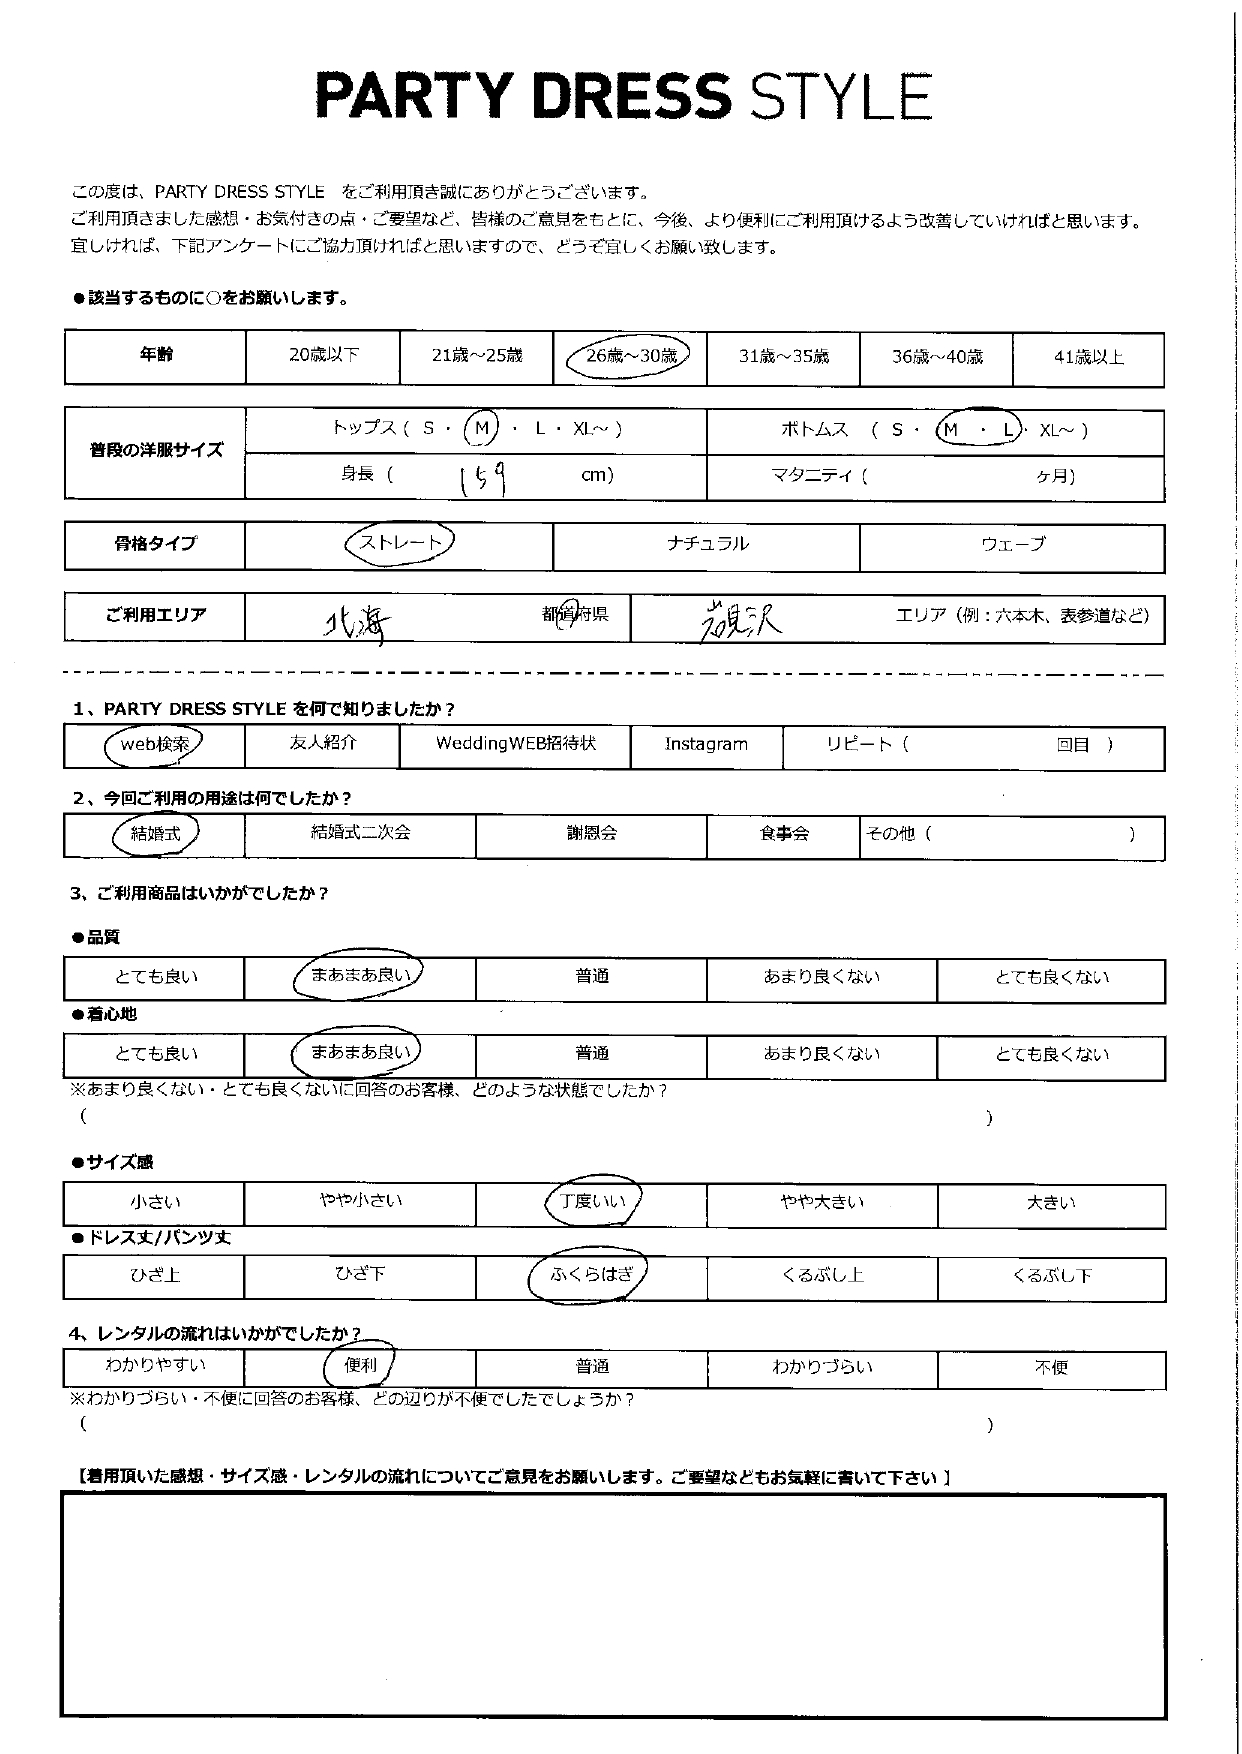 PARTY DRESS STYLE
この度は、PARTY DRESS STYLE をご利用頂き誠にありがとうございます。
ご利用頂きました感想・お気付きの点・ご要望など、皆様のご意見をもとに、今後、より便利にご利用頂けるよう改善していければと思います。
宜しければ、下記アンケートにご協力頂ければと思いますので、どうぞ宜しくお願い致します。
●該当するものに○をお願いします。
年齢 20歳以下 21歳～25歳 26歳～30歳 31歳～35歳 36歳～40歳 41歳以上
普段の洋服サイズ トップス ( S ・ M ・ L ・ XL～ ) ボトムス ( S ・ M ・ L ・ XL～ )
身長 ( 159 cm) マタニティ ( ヶ月)
骨格タイプ ストレート ナチュラル ウェーブ
ご利用エリア 北海 都道府県 岩見沢 エリア（例：六本木、表参道など）
1、PARTY DRESS STYLE を何で知りましたか？
web検索 友人紹介 WeddingWEB招待状 Instagram リピート ( 回目 )
2、今回ご利用の用途は何でしたか？
結婚式 結婚式二次会 謝恩会 食事会 その他 ( )
3、ご利用商品はいかがでしたか？
●品質
とても良い まあまあ良い 普通 あまり良くない とても良くない
●着心地
とても良い まあまあ良い 普通 あまり良くない とても良くない
※あまり良くない・とても良くないに回答のお客様、どのような状態でしたか？
( )
●サイズ感
小さい やや小さい 丁度いい やや大きい 大きい
●ドレス丈/パンツ丈
ひざ上 ひざ下 ふくらはぎ くるぶし上 くるぶし下
4、レンタルの流れはいかがでしたか？
わかりやすい 便利 普通 わかりづらい 不便
※わかりづらい・不便に回答のお客様、どの辺りが不便でしたでしょうか？
( )
【着用頂いた感想・サイズ感・レンタルの流れについてご意見をお願いします。ご要望などもお気軽に書いて下さい 】